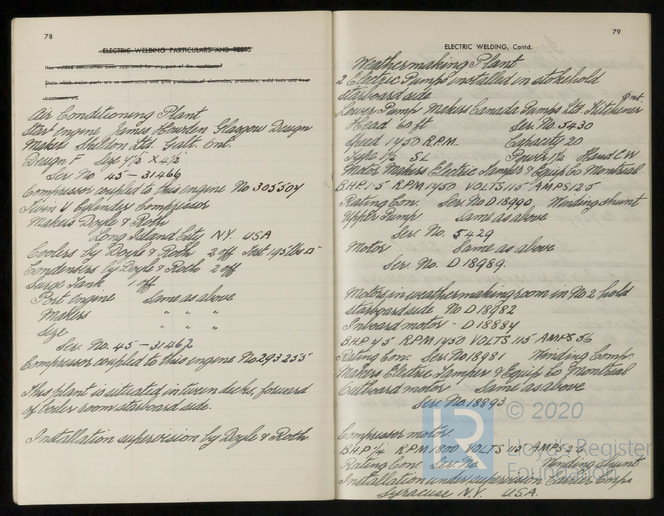 78
ELECTRIC WELDING PARTICULARS AND TESTS
Has welded construction been approved for any part of the machinery?
State which major parts are so constructed and give particulars of electrodes, procedure, weld tests and heat
treatment, etc.
Air Conditioning Plant
Star engine James Howden Glasgow Design
Makers Shelion Ltd. Galt. Ont.
Design F Size 4½ X 4½
Ser No 45-31466
Compressor coupled to this engine No 305504
Twin V Cylinder Compressor
Makers Doyle & Roth
Long Island City N.Y. U.S.A
Coolers by Doyle & Roth 2 off Test 195 lbs □"
Condensers by Doyle & Roth 2 off
Surge Tank 1 off
Port engine Same as above
Makers " " "
Size " " "
Ser. No. 45-31462
Compressor coupled to this engine No 293255
This plant is situated in tween decks, forward
of boiler room starboard side.
Installation supervision by Doyle & Roth
79
ELECTRIC WELDING, Contd.
Weathermaking Plant
2 Electric Pumps installed in stokehold
starboard side
Lower Pump Makers Canada Pumps Ltd. Kitchener Ont.
Head 60 ft Ser. No. 5430
Speed 1750 R.P.M. Capacity 20
Type 1½ SL Power 1½ Hand C.W
Motor Makers Electric Tamper & Equip Co Montreal
B.H.P 1.5 R.P.M 1750 VOLTS 115 AMPS 12.5
Rating Con. Ser No D18990 Winding shunt
Upper Pump Same as above
Ser. No. 5429
Motor Same as above
Ser. No. D18989
Motors in weathermaking room in No 2 hold
starboard side No D18982
Inboard motor - D18884
B.H.P 7.5 R.P.M 1750 VOLTS 115 AMPS 56
Rating Con: Ser. No 18981 Winding Comp
Makers Electric Tamper & Equip Co Montreal
Outboard motor Same as above
Ser. No 18893
Compressor motor
B.H.P ¼ R.P.M 1800 VOLTS 115 AMPS 2.6
Rating Con: Ser. No Winding shunt
Installation under supervision Carrier Corps
Syracuse N.Y. U.S.A.
© 2020
Lloyd's Register
Foundation